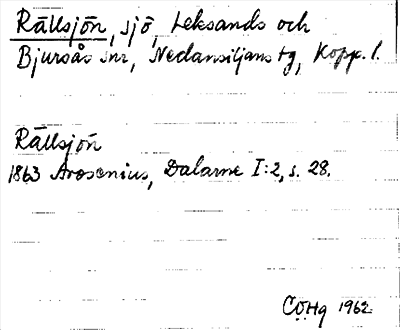 Rällsjön, sjö, Leksands och
Bjursås snr, Nedansiljans tg, Kopp. l.
Rällsjön
1863 Arosenius, Dalarne I:2, s. 28.
C.O.Hg 1962